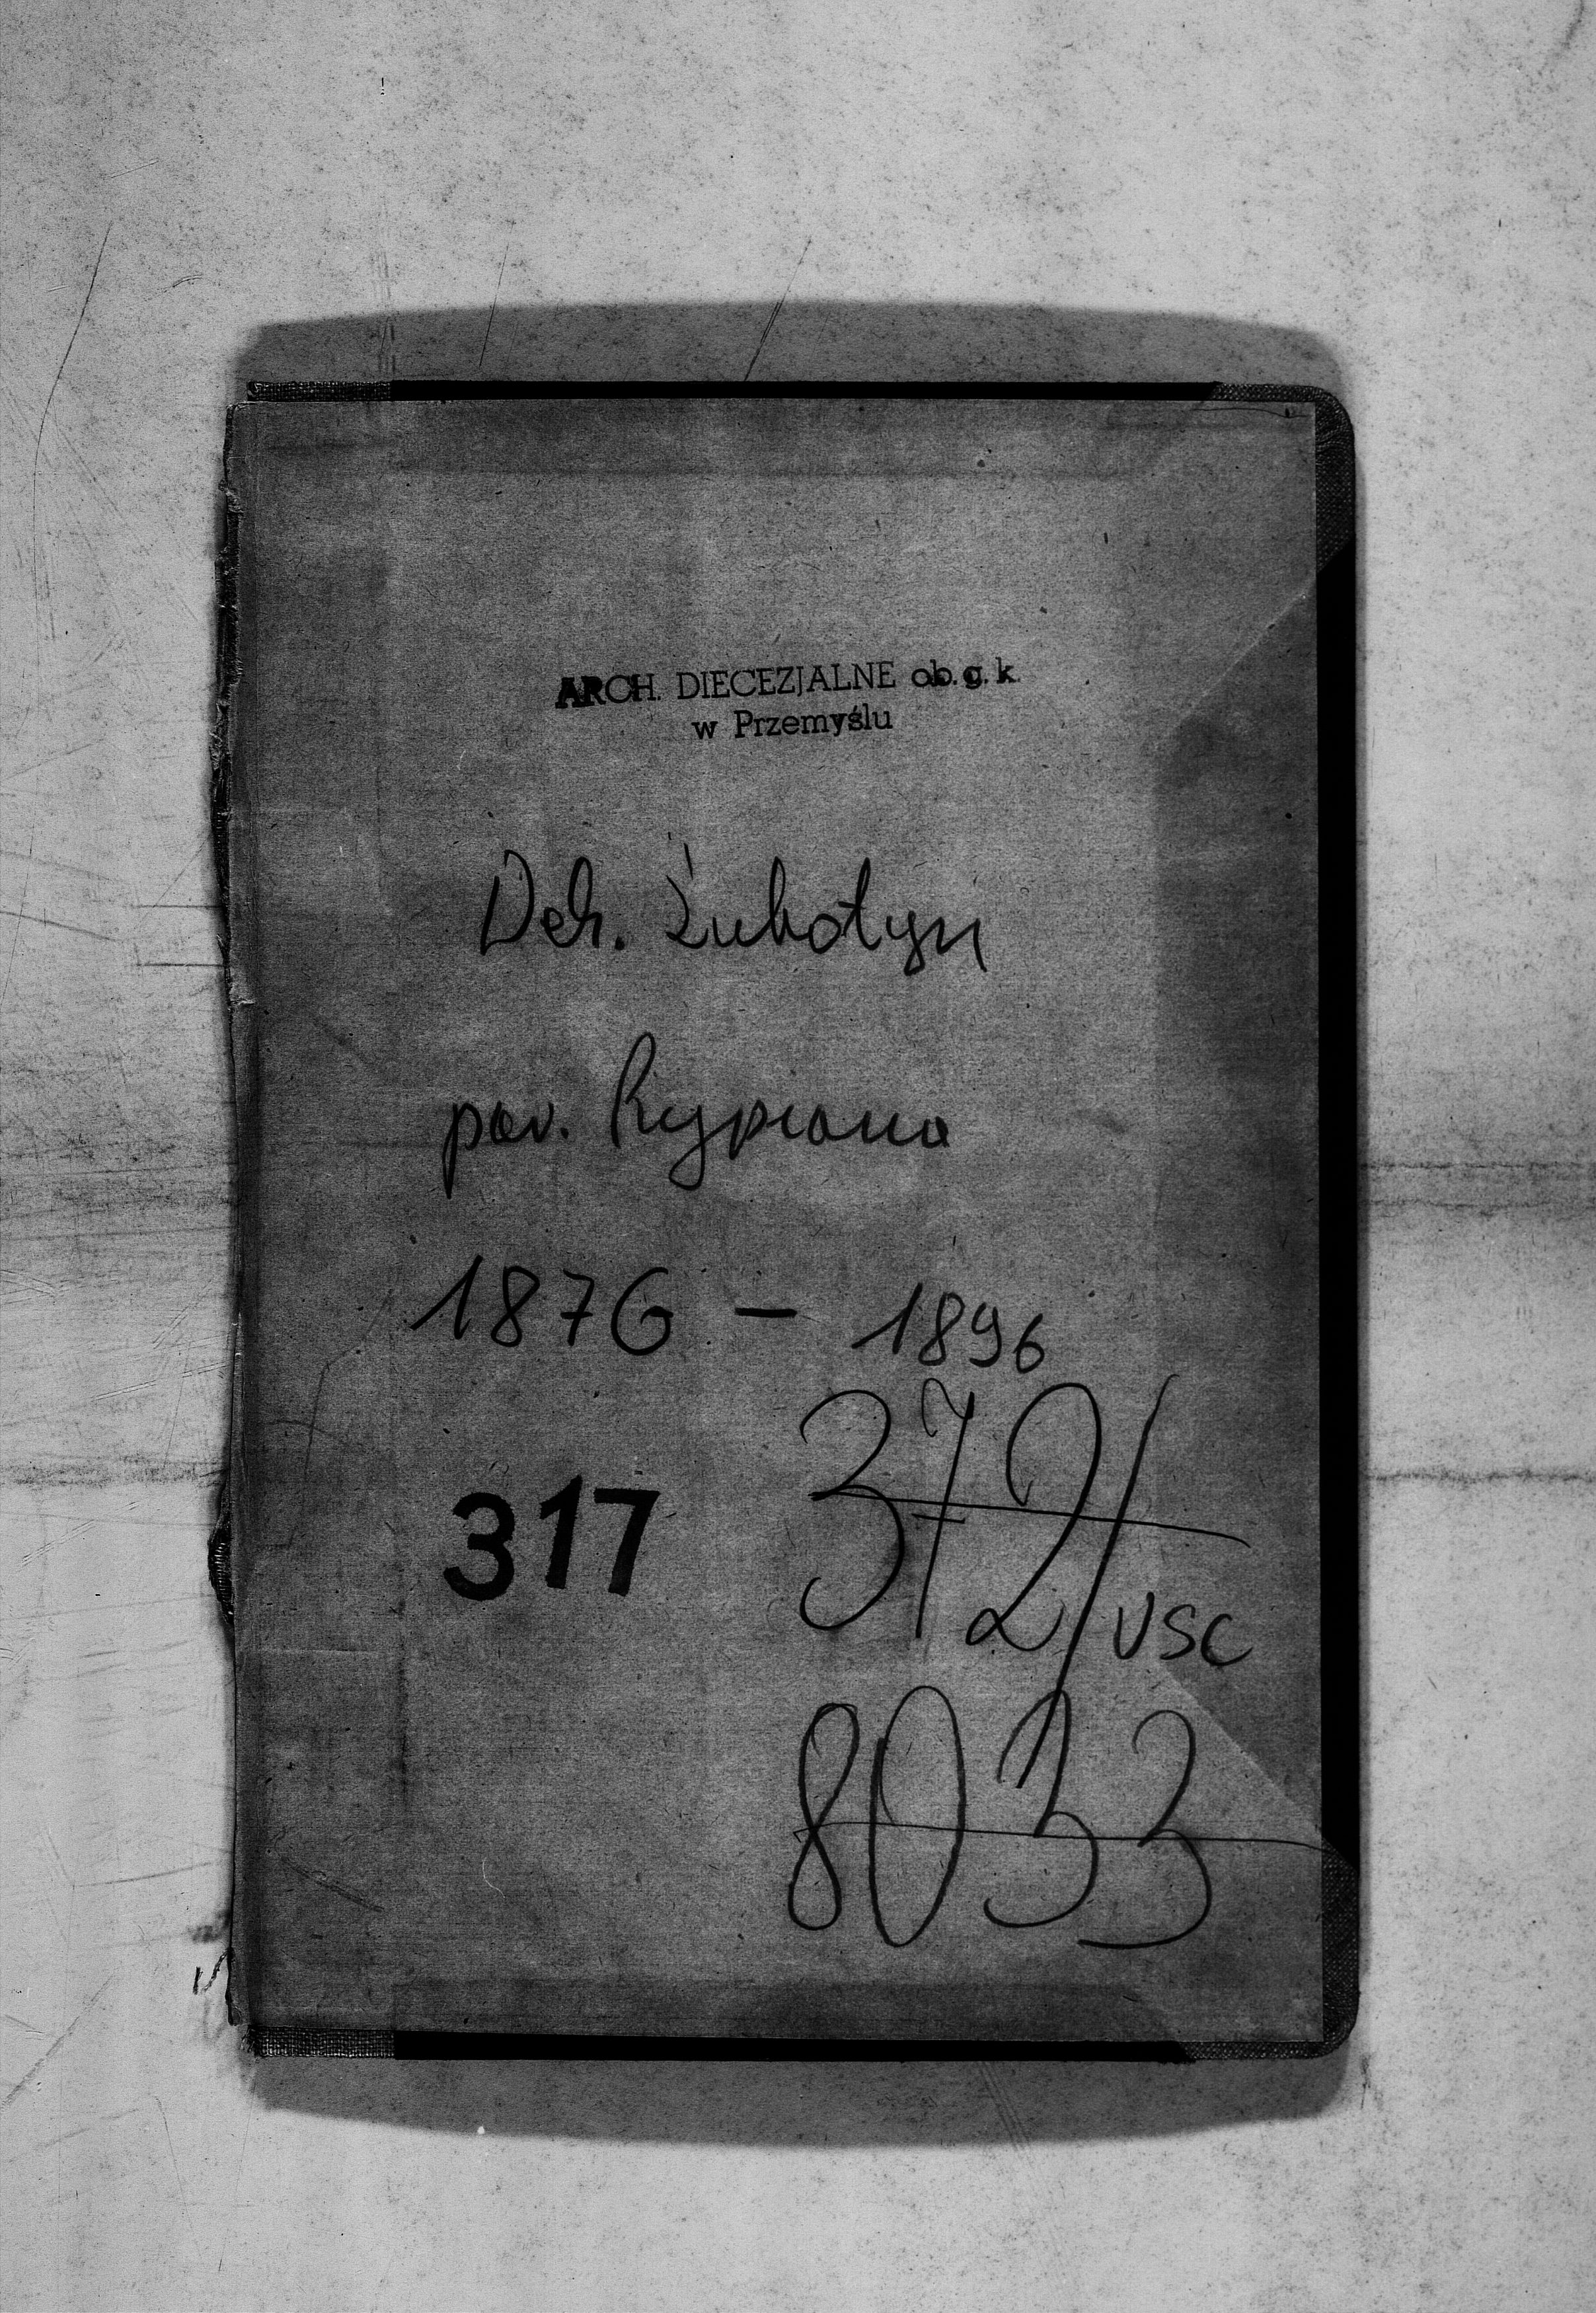 ARCH. DIECEZJALNE ob. g. k.
w Przemyślu
Dek. Żukotyn
par. Rypiana
1876 - 1896
317
372/VSC
8033